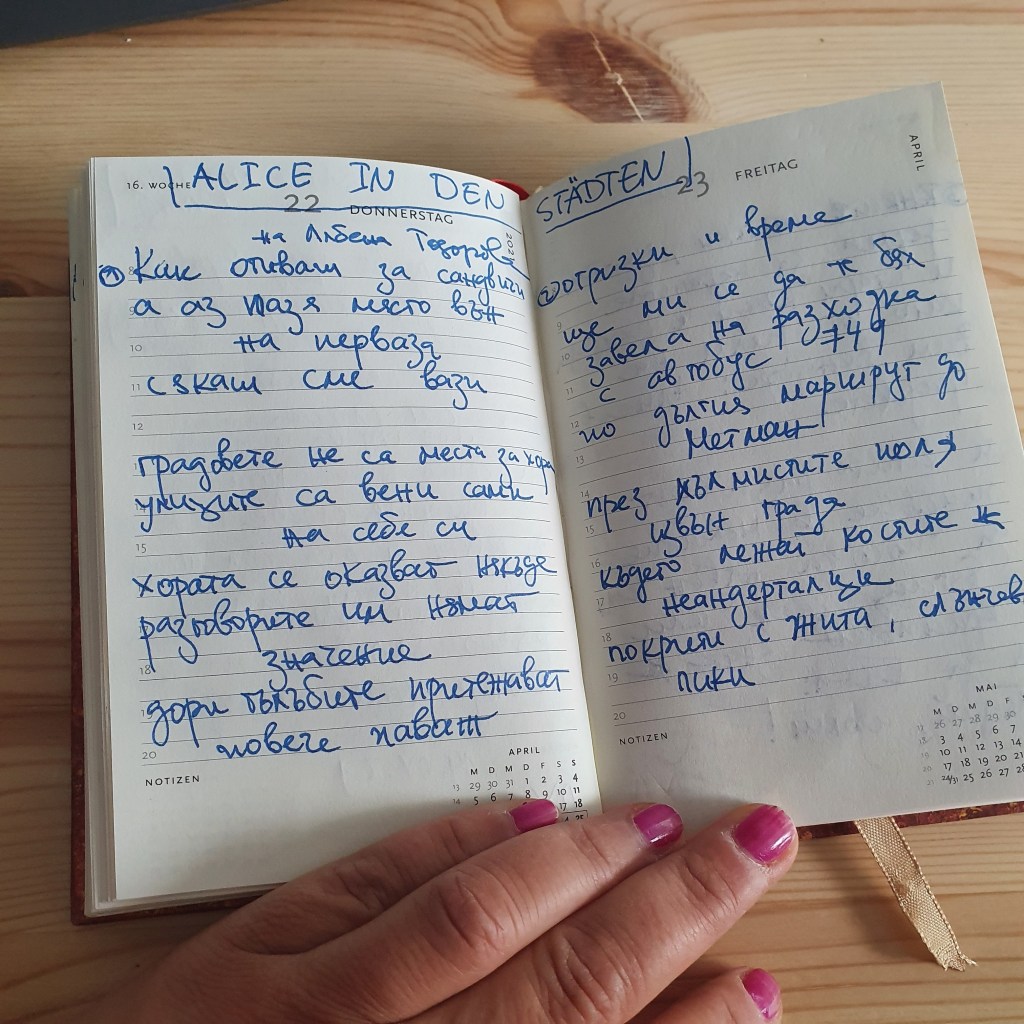 16. WOCHE ALICE IN DEN
22 DONNERSTAG
на Любена Тодорова
① Как отиваш за сандвичи
а аз пазя място вън
на перваза
сякаш сме вази
градовете не са места за хора
улиците са вени сами
на себе си
хората се оказват някъде
разговорите им нямат
значение
дори гълъбите притежават
повече
NOTIZEN
APRIL
M D M D F S S
13 29 30 31 1 2 3 4
14 5 6 7 8 9 10 11
17 18
25
STÄDTEN
23 FREITAG
APRIL
② отризки и време
ще ми се да те бях
завела на разходка
с автобус 749
по дългия маршрут до
Метман
през хълмистите поля
извън града
където лежат костите
неандерталци
покрити с жита,
пики
NOTIZEN
MAI
M D M D F
26 27 28 29 30
3 4 5 6 7
10 11 12 13 14
17 18 19 20 21
24/31 25 26 27 28